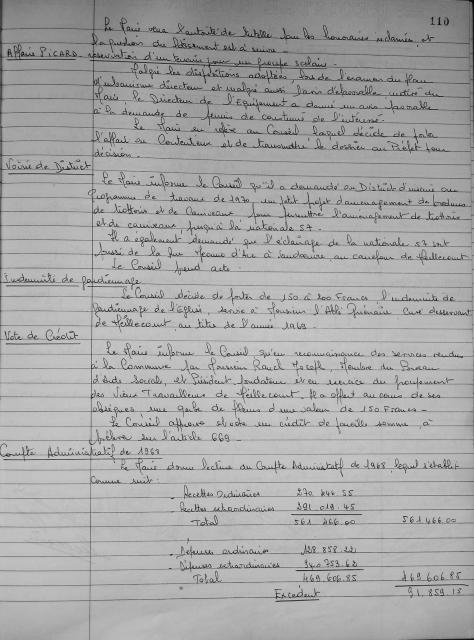 110
Le Maire verra l'autorité de tutelle pour les honoraires réclamés, et
la question du lotissement est à suivre -
Affaire PICARD - réservation d'un terrain pour un groupe scolaire -
Malgré les dispositions adoptées, lors de l'examen du plan
d'urbanisme directeur et malgré aussi l'avis défavorable motivé du
Maire, le Directeur de l'Equipement a donné un avis favorable
à la demande de permis de construire de l'intéressé.
Le Maire en réfère au Conseil lequel décide de porter
l'affaire au Contentieux et de transmettre le dossier au Préfet pour
décision.
Voirie de District
Le Maire informe le Conseil qu'il a demandé au District d'inscrire au
Programme de travaux de 1970, un petit projet d'aménagement de bordures
de trottoirs et de Caniveaux, pour permettre l'aménagement de trottoirs
et de caniveaux, jusqu'à la nationale 57.
Il a également demandé que l'éclairage de la nationale 57 soit
poussé de la Rue Jeanne d'Arc à , au carrefour de Heillecourt.
Le Conseil prend acte.
Indemnité de gardiennage
Le Conseil décide de porter de 150 à 200 Francs, l'indemnité de
Gardiennage de l'Eglise, servie à Monsieur l'Abbé Curé desservant
de Heillecourt, au titre de l'année 1969.
Vote de Crédit
Le Maire informe le Conseil qu'en reconnaissance des services rendus
à la Commune par Monsieur Joseph, Membre du Bureau
d'Aide Sociale, et Président fondateur et en service du groupement
des Vieux Travailleurs de Heillecourt, Il a offert au cours de ses
obsèques une gerbe de fleurs d'une valeur de 150 Francs -
Le Conseil approuve et vote un crédit de pareille somme, à
prélever sur l'article 669 -
Compte Administratif de 1968
Le Maire donne lecture du Compte Administratif de 1968, lequel s'établit
comme suit :
- Recettes Ordinaires 270 446.55
- Recettes extraordinaires 291 019.45
Total 561 466.00 561 466.00
- Dépenses ordinaires 128.858.22
- Dépenses extraordinaires 340 753.63
Total 469.606.85 469.606.85
Excédent 91.859.15